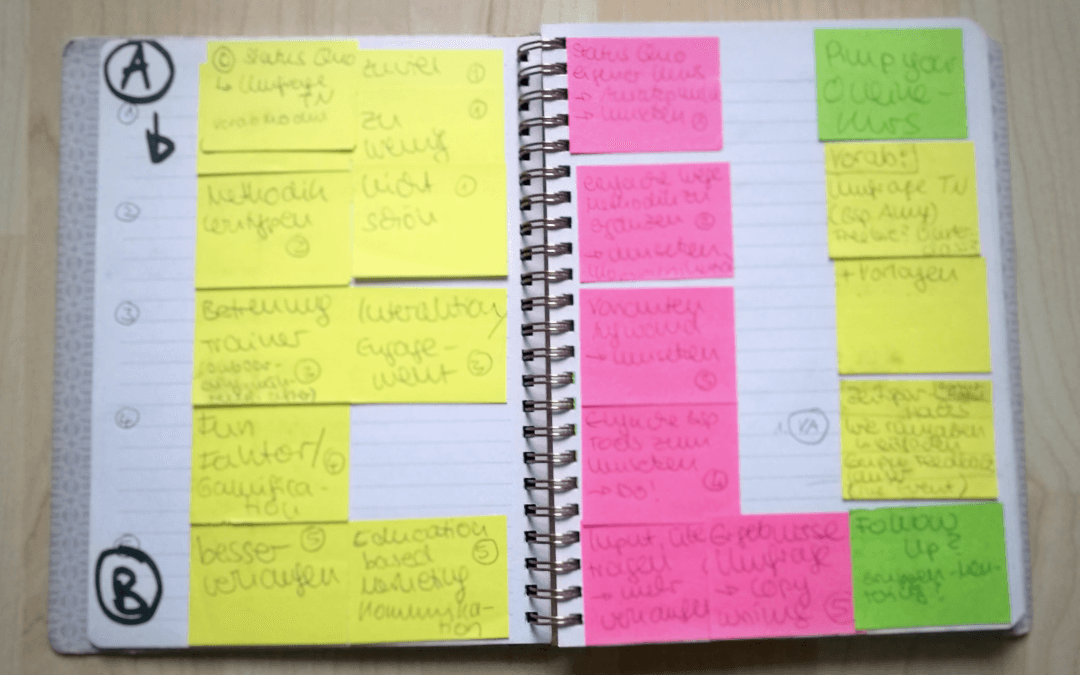 A
b
①
② 
③
④
B
⓪ Status Quo
↳ Umfrage
TN
zuviel ①
zu ①
wenig
Methodik
Lerntypen
②
nicht ①
schön
Betreuung
Trainer
③
Interaktion/
Engage-
ment ③
Fun
Faktor/ ④
Gamifika-
tion
besser ⑤
verkaufen
Education
based ⑤
Marketing
Kommunika-
tion
Status Quo
eigener Kurs
→ umsetzen
einfache Wege
Methodik zu
ergänzen ②
→ umsetzen
Varianten
Aufwand
→ umsetzen
③
Einfache Bsp
Tools zum
umsetzen ④
→ DO!
Input, Übe
tragen
→ mehr
verkaufen
Ergebnisse
Umfrage
→ Copy
writing ⑤
Pimp your
Online-
Kurs
Vorab!
Umfrage TN
+ Vorlagen
VA
Zeitspar
Hacks
Follow
Up?
Gruppen-